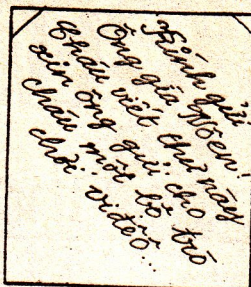 Kính gửi
Ông già Nôen!
Cháu viết thư này
xin ông gửi cho
cháu một bộ trò
chơi viđêô...